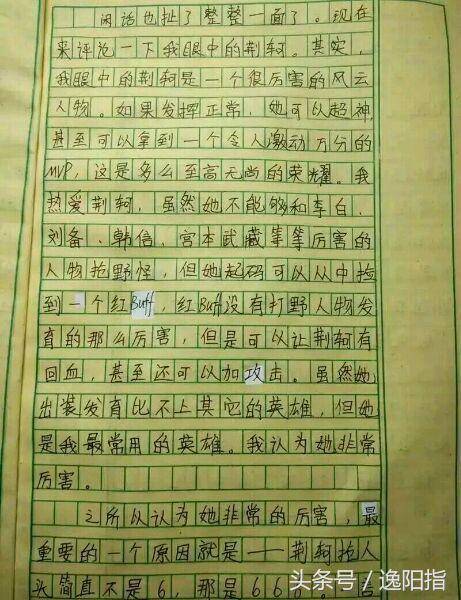 闲话也扯了整整一面了。现在
来评论一下我眼中的荆轲。其实,
我眼中的荆轲是一个很厉害的风云
人物。如果发挥正常,她可以超神,
甚至可以拿到一个令人激动万分的
MVP,这是多么至高无尚的荣耀。我
热爱荆轲,虽然她不能够和李白、
刘备、韩信、宫本武藏等等厉害的
人物抢野怪,但她起码可以从中捡
到一个红Buff,红Buff没有打野人物发
育的那么厉害,但是可以让荆轲有
回血,甚至还可以加攻击。虽然她
出装发育比不上其它的英雄,但她
是我最常用的英雄。我认为她非常
厉害。
之所以认为她非常的厉害,最
重要的一个原因就是——荆轲抢人
头简直不是6,那是666。
头条号/逸阳指